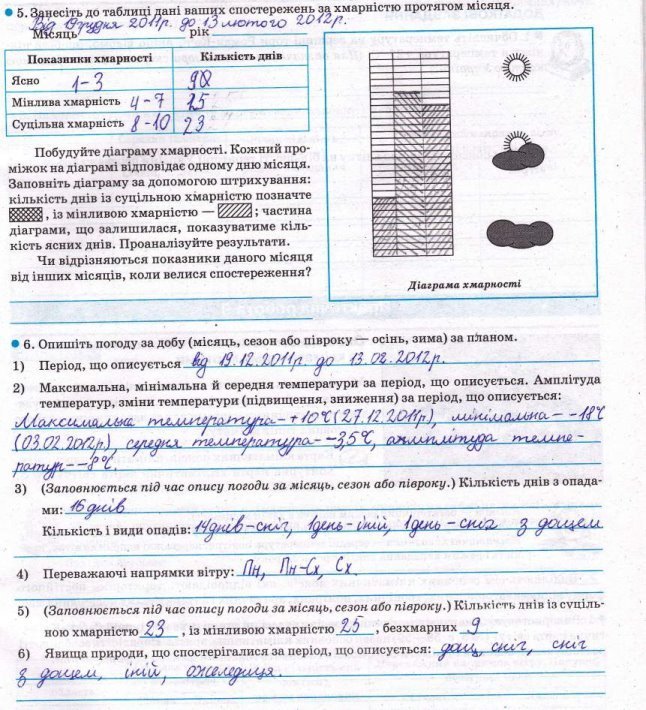 5. Занесіть до таблиці дані ваших спостережень за хмарністю протягом місяця.
Від 19 грудня 2011р. до 13 лютого 2012р.
Місяць рік
Показники хмарності Кількість днів
Ясно 1-3 9
Мінлива хмарність 4-7 25
Суцільна хмарність 8-10 23
Побудуйте діаграму хмарності. Кожний про-
міжок на діаграмі відповідає одному дню місяця.
Заповніть діаграму за допомогою штрихування:
кількість днів із суцільною хмарністю позначте
, із мінливою хмарністю — ; частина
діаграми, що залишилася, показуватиме кіль-
кість ясних днів. Проаналізуйте результати.
Чи відрізняються показники даного місяця
від інших місяців, коли велися спостереження?
Діаграма хмарності
6. Опишіть погоду за добу (місяць, сезон або півроку — осінь, зима) за планом.
1) Період, що описується від 19.12.2011р. до 13.02.2012р.
2) Максимальна, мінімальна й середня температури за період, що описується. Амплітуда
температур, зміни температури (підвищення, зниження) за період, що описується:
Максимальна температура - +10°С (27.12.2011р), мінімальна - -18°С
(03.02.2012р), середня температура - -3,5°С, амплітуда темпе-
ратур - -8°С.
3) (Заповнюється під час опису погоди за місяць, сезон або півроку.) Кількість днів з опада-
ми: 16 днів
Кількість і види опадів: 14днів-сніг, 1день-іній, 1день-сніг з дощем
4) Переважаючі напрямки вітру: Пн, Пн-Сх, Сх.
5) (Заповнюється під час опису погоди за місяць, сезон або півроку.) Кількість днів із суціль-
ною хмарністю 23 , із мінливою хмарністю 25 , безхмарних 9
6) Явища природи, що спостерігалися за період, що описується: дощ, сніг, сніг
з дощем, іній, ожеледиця.